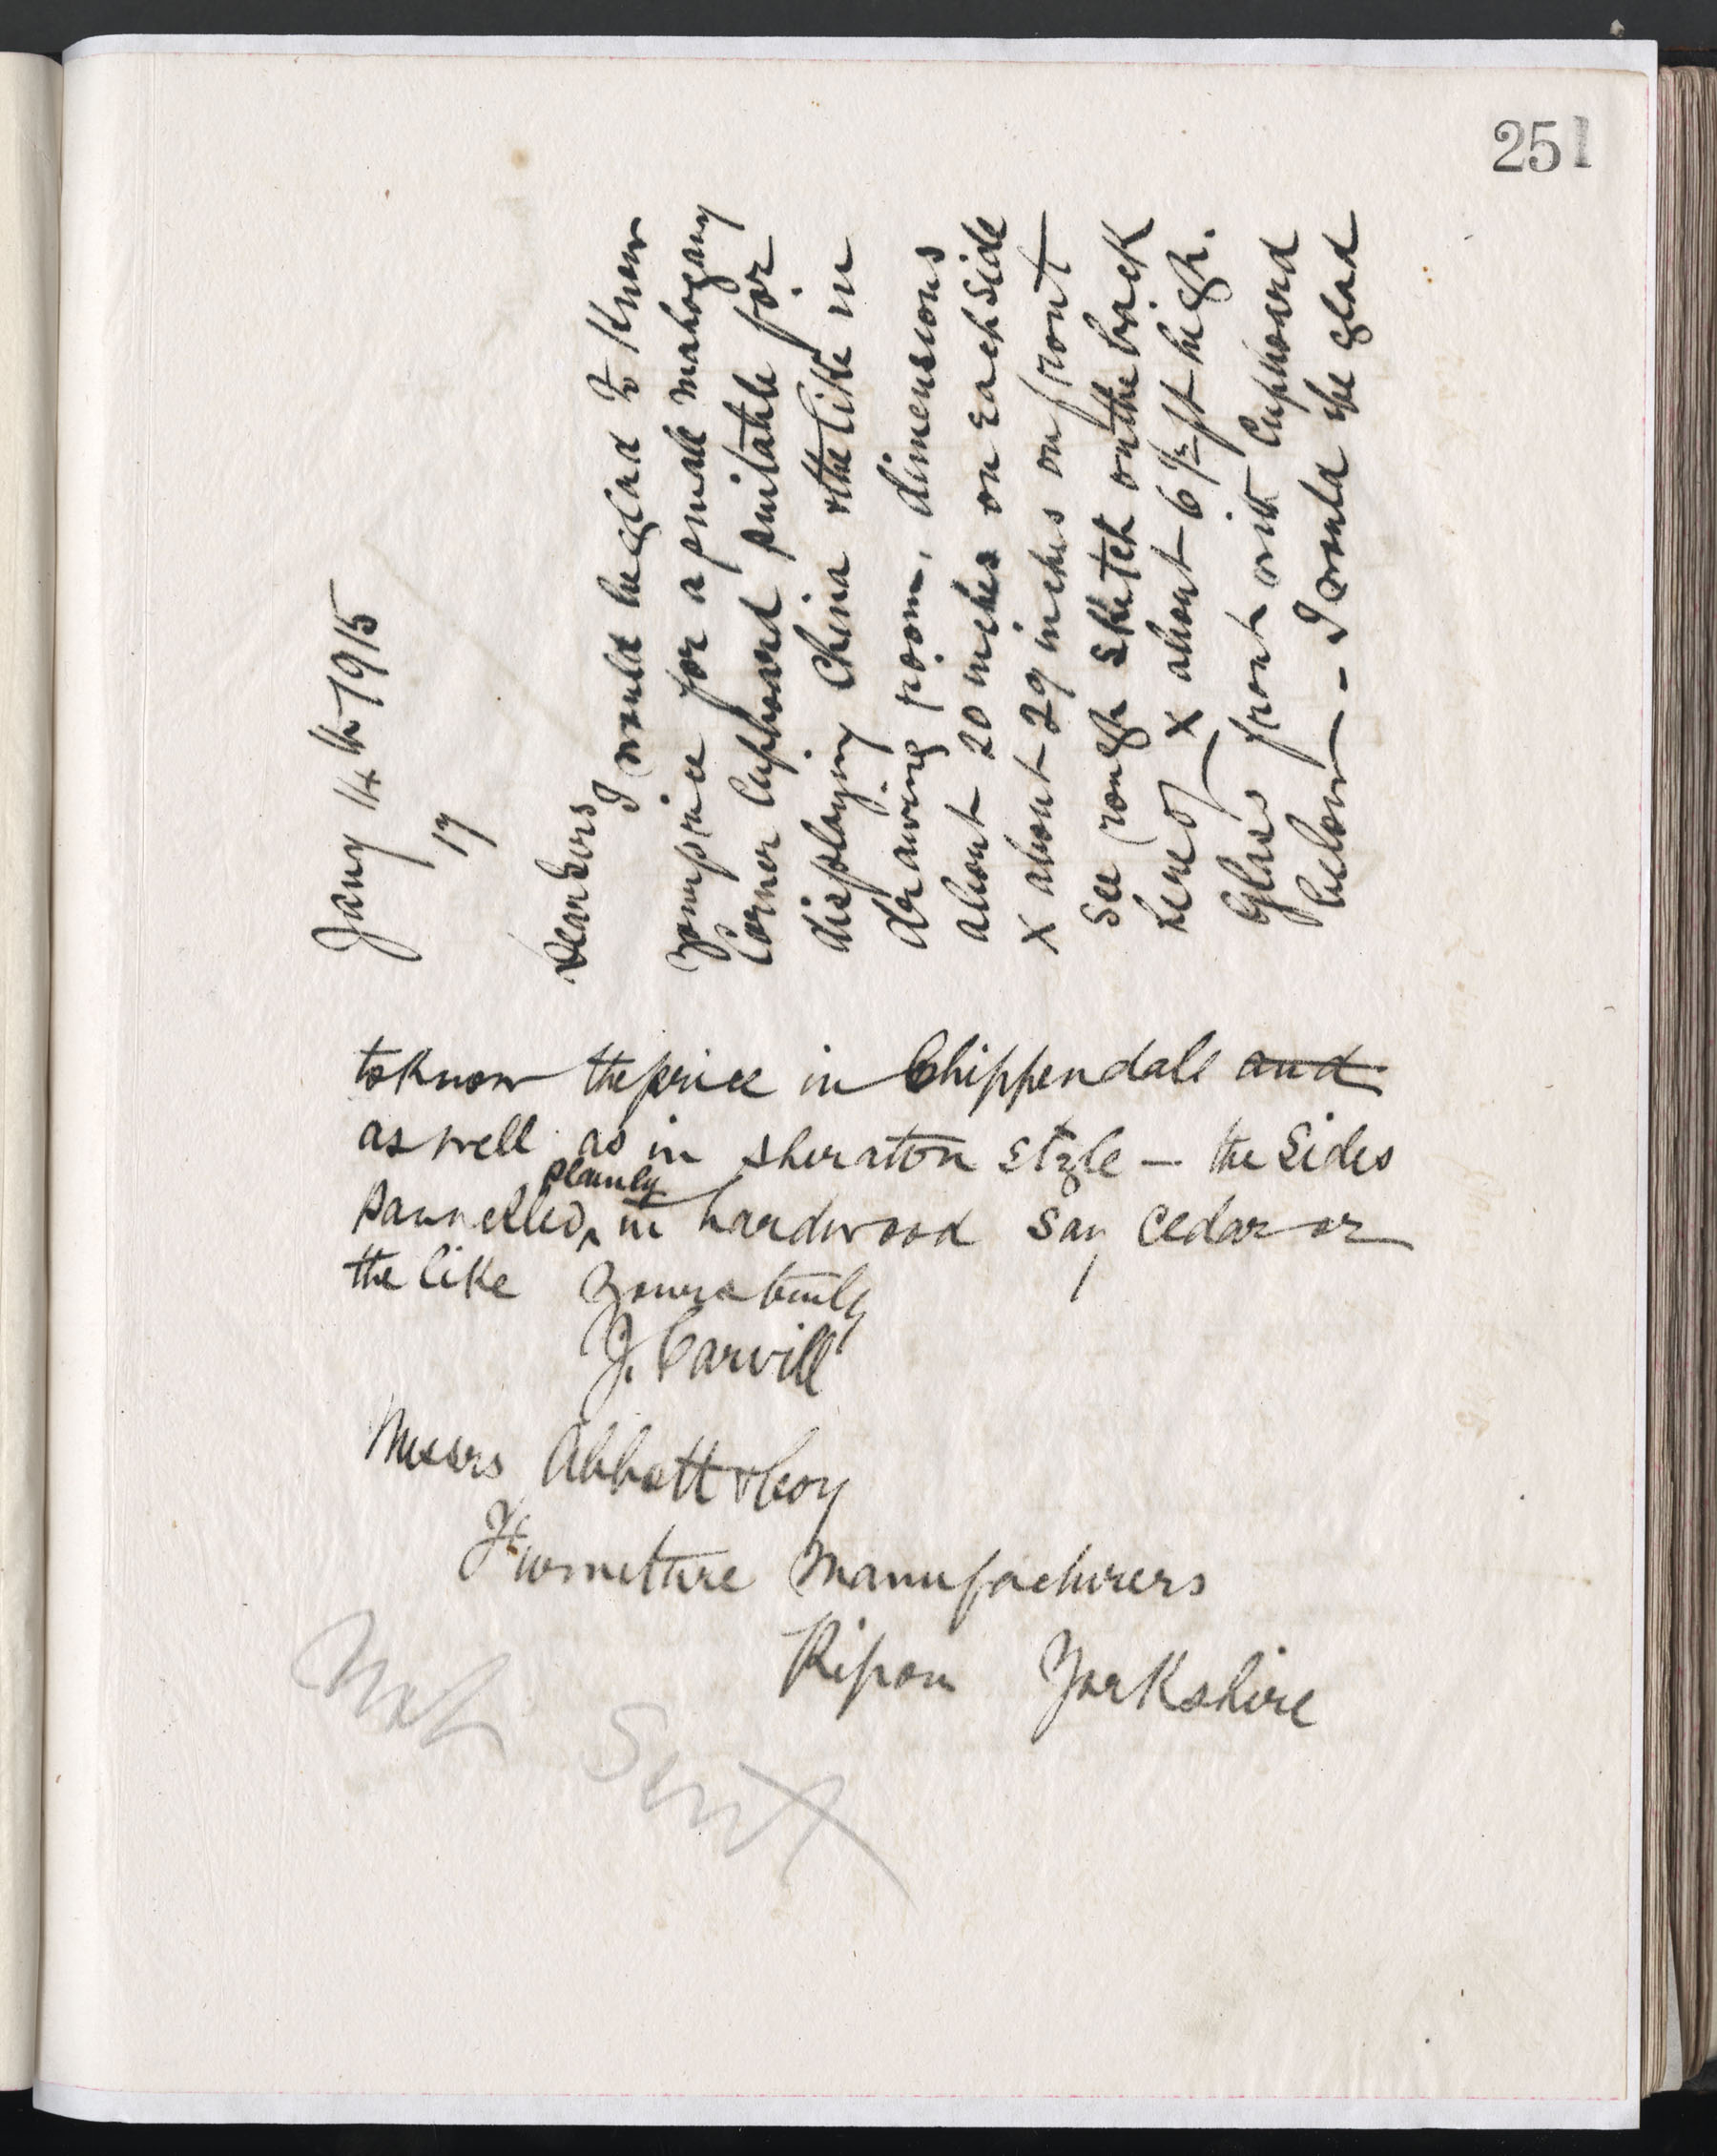 251
Jany 14th 1915
17
Dear Sirs
I would be glad to know
your price for a small mahogany
Corner Cupboard suitable for
displaying China & the like in
drawing room, dimensions
about 20 inches on each side
x about 29 inches on front
see rough sketch on the back
hereof x about 6½ ft high.
Glass front with Cupboard
below — I would be glad
to know the price in Chippendale and
as well as in sheraton style — the Sides
pannelled plainly in hardwood say cedar or
the like Yours truly
J. Carvill
Messrs Abbott & Coy
Furniture Manufacturers
Ripon Yorkshire
Not Sent